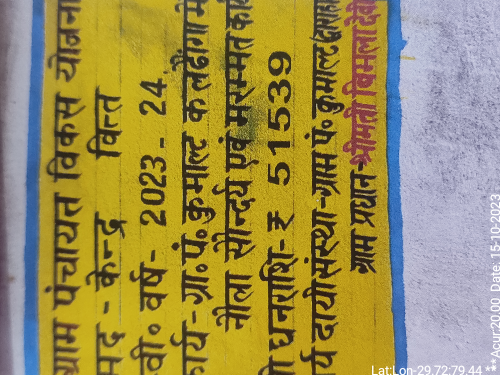 ग्राम पंचायत विकास योजना
मद - केन्द्र वित्त
वर्ष- 2023 - 24
कार्य- ग्रा॰ पं॰ कुमाल्ट के लढींगा में
नौला सौन्दर्य एवं मरम्मत कार्य
धनराशि- ₹ 51539
दायी संस्था - ग्राम पं॰ कुमाल्ट द्वाराहाट
ग्राम प्रधान- श्रीमती बिमला देवी
Lat:Lon-29.72:79.44
**Acur20.00 Date, 15-10-2023